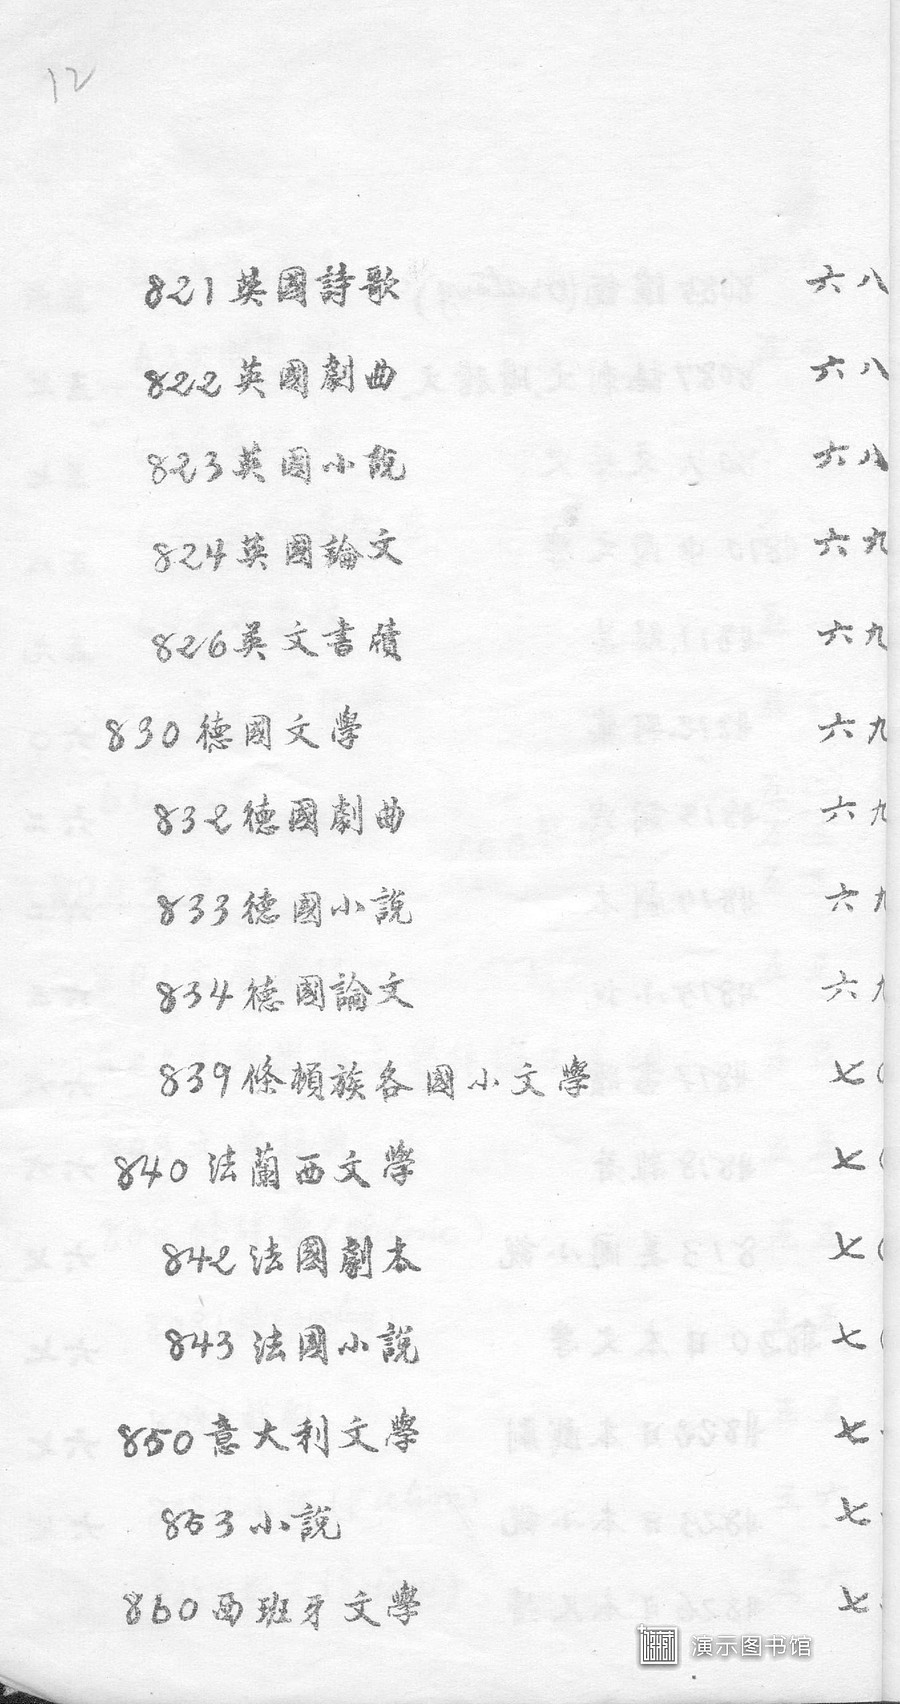 12
821 英國詩歌 六八
822 英國劇曲 六八
823 英國小說 六八
824 英國論文 六九
826 英文書牘 六九
830 德國文學 六九
832 德國劇曲 六九
833 德國小說 六九
834 德國論文 六九
839 條頓族各國小文學 七
840 法蘭西文學 七
842 法國劇本 七
843 法國小說 七
850 意大利文學 七
853 小說 七
860 西班牙文學 七
演示图书馆